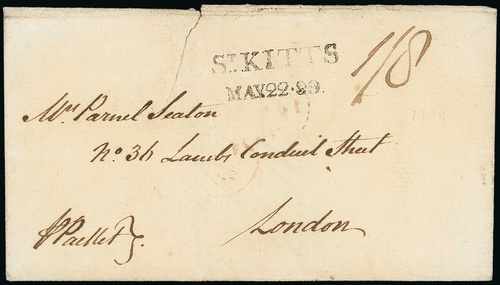 St. KITTS
MAY 22. 99.
1/8
Mrs. Parnel Seaton
No. 36 Lambs Conduit Street
London